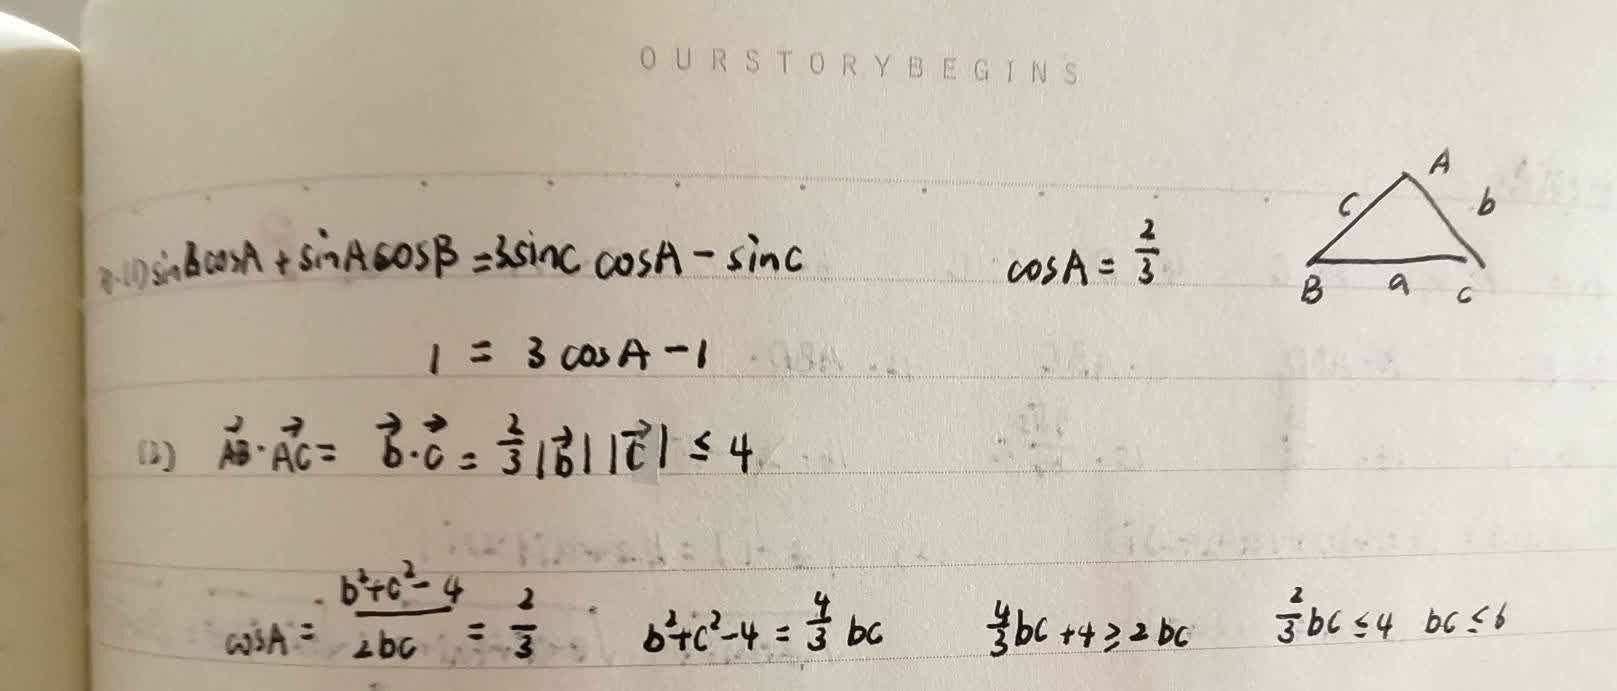 OUR STORY BEGINS
(1) sinBcosA + sinAcosB = 3sinC cosA - sinC cosA = 2/3
A
c b
B a C
1 = 3cosA - 1
(2) AB⃗·AC⃗ = b⃗·c⃗ = 2/3|b⃗||c⃗| ≤ 4
cosA = (b²+c²-4)/(2bc) = 2/3 b²+c²-4 = 4/3 bc 4/3bc+4≥2bc 2/3bc≤4 bc≤6